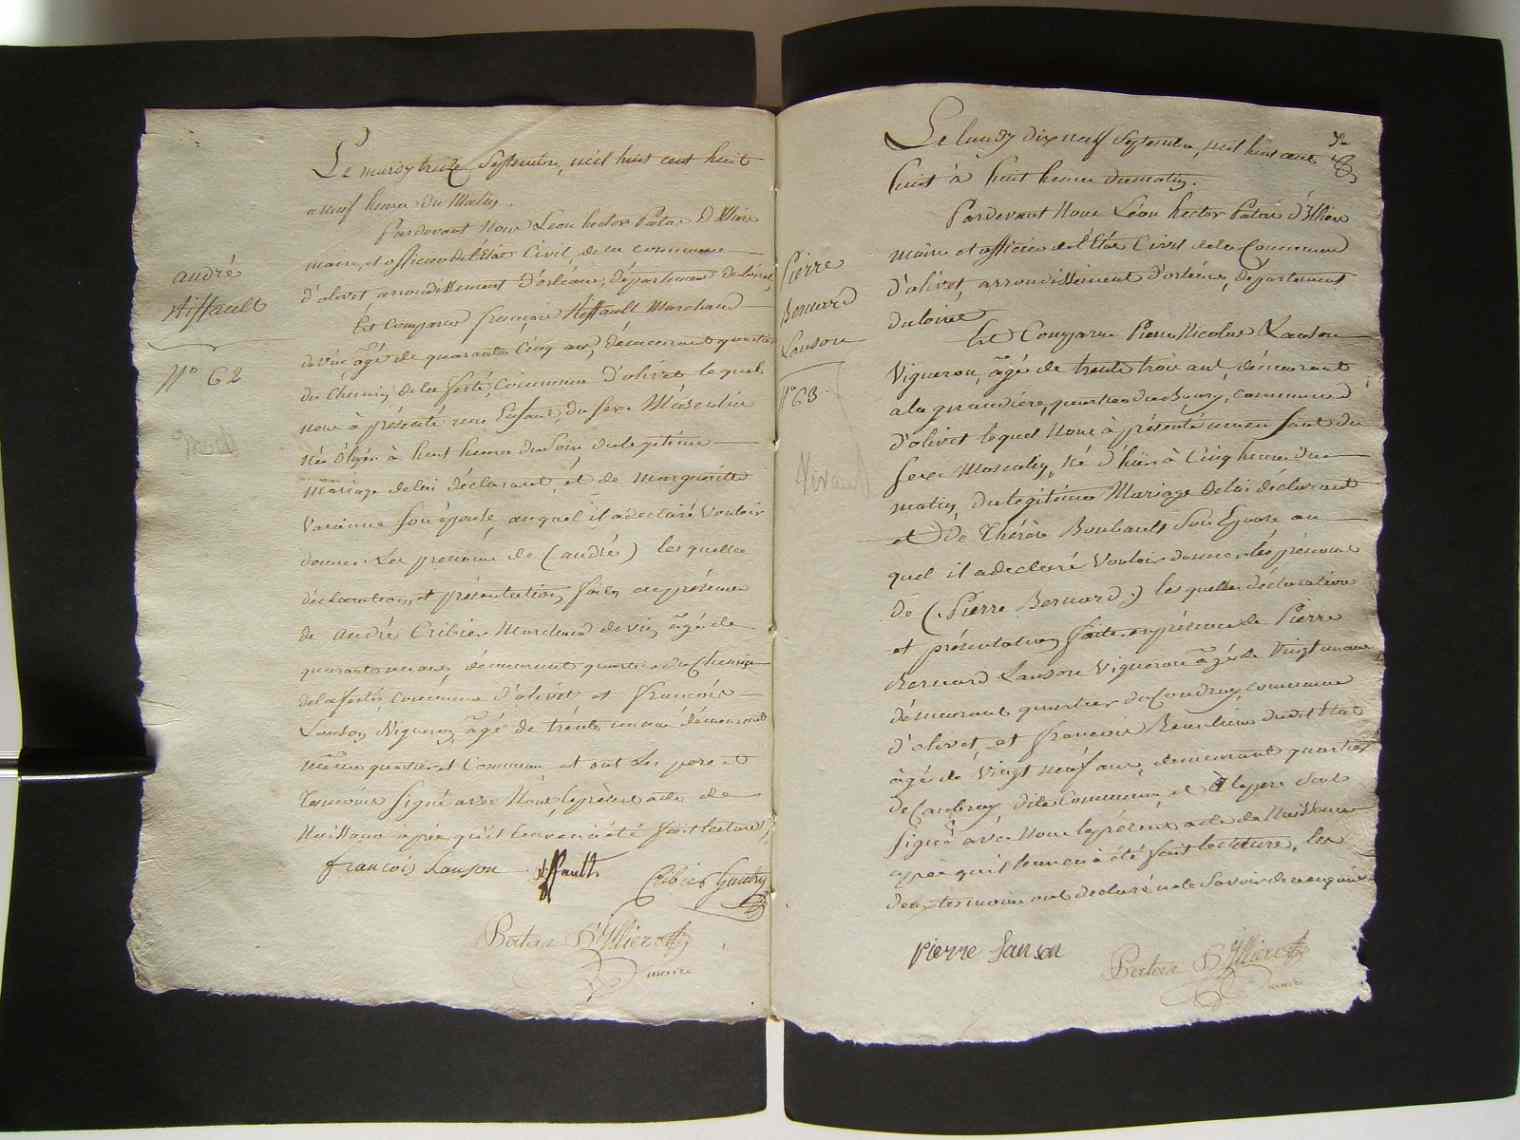 Le mardy treize Septembre, mil huit cent huit
a neuf heures du Matin.
Pardevant Nous Léon hector Patas D'Illiers
maire, et officier de l'Etat Civil, de la commune
d'olivet arrondissement d'orléans, département du loiret
Est comparu françois Hiffault Marchand
de vin, âgé de quarante cinq ans, demeurant quartier
du chemin de la ferté, commune d'olivet lequel
nous à présenté un Enfant du sexe Masculin
Né d'hyer à huit heures du soir du légitime
mariage de lui déclarant, et de marguerite
son épouse, auquel il a déclaré vouloir
donner les prenoms de (andré) lesquelles
déclaration, et présentation, faites en présence
de andré Cribier Marchand de vin, âgé de
quarante un ans, demeurant quartier du Chemin
de la ferté, commune d'olivet et françois
Lanson Vigneron, âgé de trente un ans demeurant
même quartier et Commune et ont les pere et
temoins signé avec Nous le présent acte de
Naissance après qu'il leur en a été fait lecture
françois Lanson hiffault Cribier
Patas D'Illiers
maire
andré
Hiffault
N° 62
Le lundy dix neuf Septembre, mil huit cent
huit à huit heures du matin.
Pardevant Nous Léon hector Patas d'Illiers
maire et officier de l'Etat Civil de la Commune
d'olivet, arrondissement d'orléans, département
du loiret
Est Comparu Pierre Nicolas Lanson
Vigneron, âgé de trente trois ans, demeurant
a la quartier du Bourg, commune
d'olivet lequel Nous à présenté un enfant du
sexe Masculin, Né d'hier à Cinq heures du
matin, du légitime Mariage de lui déclarant
et de Thérèse son Epouse au
quel il a declaré Vouloir donner les prénoms
de (Pierre Bernard) lesquelles déclaration
et présentation faite en présence de Pierre
Bernard Lanson Vigneron âgé de Vingt un ans
demeurant quartier du Coudray, commune
d'olivet, et françois dudit Etat
âgé de Vingt neuf ans, demeurant quartier
de dite Commune, et le pere seul
signé avec Nous le présent acte de Naissance
après qu'il leur en à été fait lecture, les
deux temoins ont declaré ne le savoir de ce enquis
pierre Lanson
Patas D'Illiers
maire
Pierre
Bernard
Lanson
N° 63
Vivant